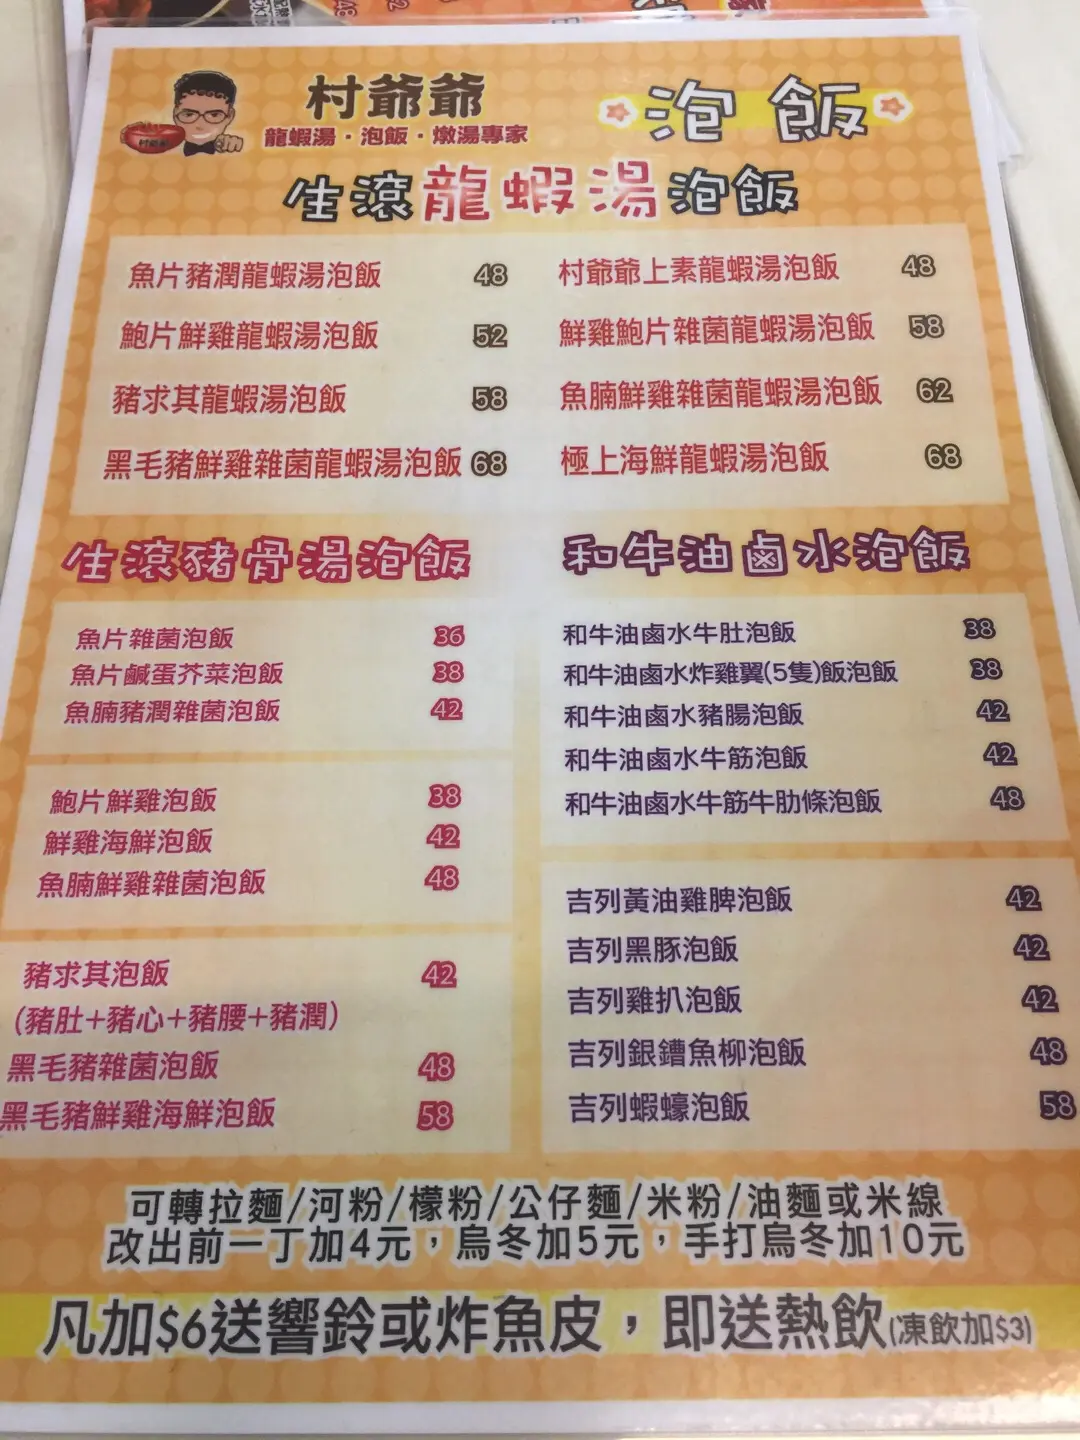 村爺爺
龍蝦湯・泡飯・燉湯專家
泡飯
生滾龍蝦湯泡飯
魚片豬潤龍蝦湯泡飯 48
鮑片鮮雞龍蝦湯泡飯 52
豬求其龍蝦湯泡飯 58
黑毛豬鮮雞雜菌龍蝦湯泡飯 68
村爺爺上素龍蝦湯泡飯 48
鮮雞鮑片雜菌龍蝦湯泡飯 58
魚腩鮮雞雜菌龍蝦湯泡飯 62
極上海鮮龍蝦湯泡飯 68
生滾豬骨湯泡飯
魚片雜菌泡飯 36
魚片鹹蛋芥菜泡飯 38
魚腩豬潤雜菌泡飯 42
鮑片鮮雞泡飯 38
鮮雞海鮮泡飯 42
魚腩鮮雞雜菌泡飯 48
豬求其泡飯 42
(豬肚+豬心+豬腰+豬潤)
黑毛豬雜菌泡飯 48
黑毛豬鮮雞海鮮泡飯 58
和牛油鹵水泡飯
和牛油鹵水牛肚泡飯 38
和牛油鹵水炸雞翼(5隻)飯泡飯 38
和牛油鹵水豬腸泡飯 42
和牛油鹵水牛筋泡飯 42
和牛油鹵水牛筋牛肋條泡飯 48
吉列黃油雞脾泡飯 42
吉列黑豚泡飯 42
吉列雞扒泡飯 42
吉列銀鱈魚柳泡飯 48
吉列蝦蠔泡飯 58
可轉拉麵/河粉/檬粉/公仔麵/米粉/油麵或米線
改出前一丁加4元，烏冬加5元，手打烏冬加10元
凡加$6送響鈴或炸魚皮，即送熱飲(凍飲加$3)